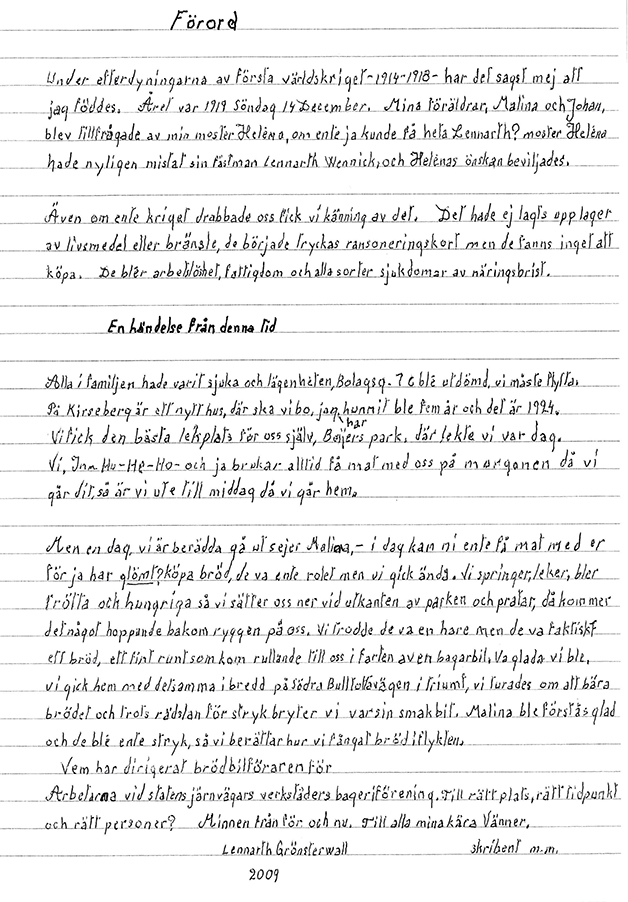 Förord
Under efterdyningarna av första världskriget-1914-1918- har det sagst mej att
jag föddes. Året var 1919 Söndag 14 December. Mina föräldrar, Malina och Johan,
blev tillfrågade av min moster Heléna, om ente ja kunde få heta Lennarth? moster Heléna
hade nyligen mistat sin fästman Lennarth Wennick, och Helénas önskan beviljades.
Även om ente kriget drabbade oss fick vi känning av det. Det hade ej lagts upp lager
av livsmedel eller bränsle, de började tryckas ransoneringskort men de fanns inget att
köpa. De blér arbetlöshet, fattigdom och alla sorter sjukdomar av näringsbrist.
En händelse från denna tid
Alla i familjen hade varit sjuka och lägenheten, Bolagsg. 7 C blé utdömd, vi måste flytta.
På Kirseberg är ett nytt hus, där ska vi bo, jag har hunnit ble fem år och det är 1924.
Vi fick den bästa lekplats för oss själv, Beijers park, där lekte vi var dag.
Vi, Ina-Hu-He-Ho- och ja brukar alltid få mat med oss på morgonen då vi
går dit, så är vi ute till middag då vi går hem.
Men en dag, vi är berädda gå ut sejer Malina,- i dag kan ni ente få mat med er
för ja har glömt? köpa bröd, de va ente rolet men vi gick ändå. Vi springer, leker, bler
trötta och hungriga så vi sätter oss ner vid utkanten av parken och pratar, då kommer
det något hoppande bakom ryggen på oss. Vi trodde de va en hare men de va faktiskt
ett bröd, ett fint runt som kom rullande till oss i farten av en bagarbil. Va glada vi ble,
vi gick hem med detsamma i bredd på Södra Bulltoftavägen i triumf, vi turades om att bära
brödet och trots rädslan för stryk bryter vi varsin smakbit. Malina ble förstås glad
och de blé ente stryk, så vi berättar hur vi fångat bröd i flykten.
Vem har dirigerat brödbilföraren för
Arbetarna vid statens järnvägars verkstäders bageriförening. Till rätt plats, rätt tidpunkt
och rätt personer? Minnen från för och nu. Till alla mina kära Vänner.
Lennarth Grönsterwall skribent m.m.
2009